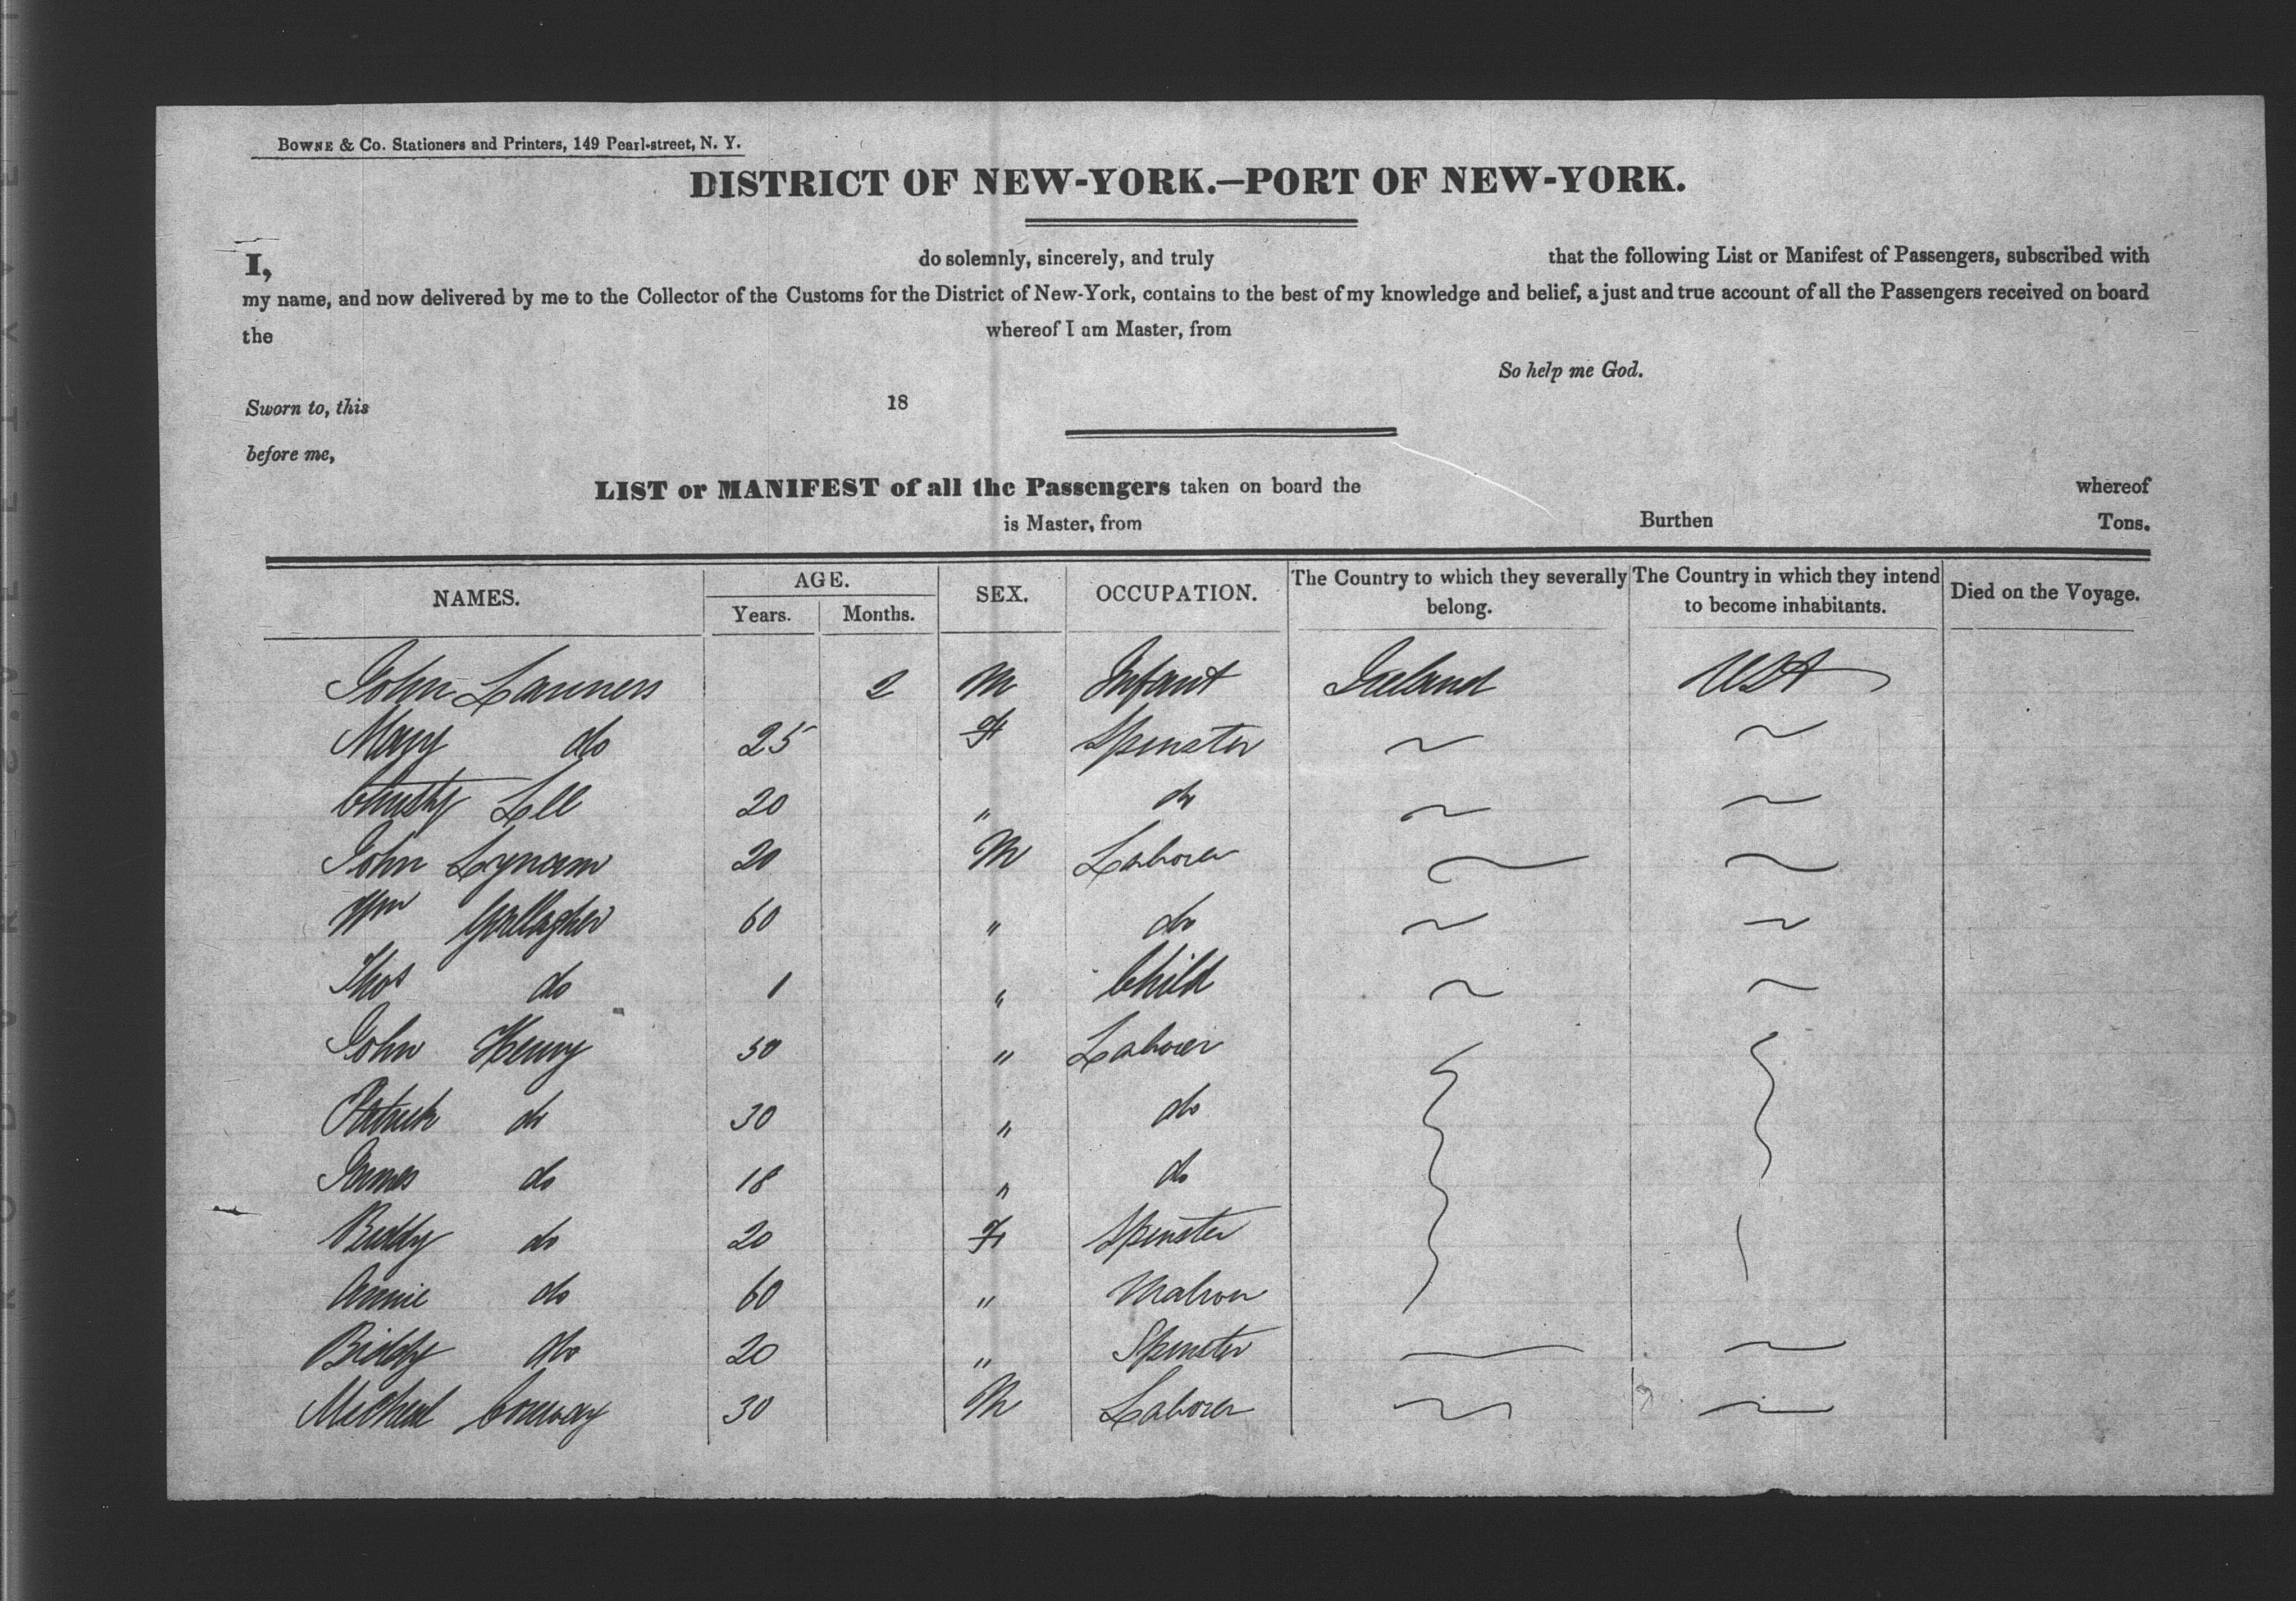 BOWNE & Co. Stationers and Printers, 149 Pearl-street, N. Y.
DISTRICT OF NEW-YORK.—PORT OF NEW-YORK.
I, do solemnly, sincerely, and truly that the following List or Manifest of Passengers, subscribed with
my name, and now delivered by me to the Collector of the Customs for the District of New-York, contains to the best of my knowledge and belief, a just and true account of all the Passengers received on board
the whereof I am Master, from
So help me God.
Sworn to, this 18
before me,
LIST or MANIFEST of all the Passengers taken on board the whereof
is Master, from Burthen Tons.
NAMES. AGE. Years. Months. SEX. OCCUPATION. The Country to which they severally belong. The Country in which they intend to become inhabitants. Died on the Voyage.
John 2 M Infant Ireland USA
Mary do 25 F Spinster
20 " do
John Lynam 20 M Laborer
Wm Gallagher 60 " do
Thos do 1 " Child
John Henry 50 " Laborer
Patrick do 30 " do
James do 18 " do
Biddy do 20 F Spinster
Annie do 60 " Matron
Biddy do 20 " Spinster
Micheal Conway 30 M Laborer